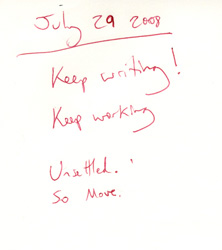 July 29 2008
Keep writing!
Keep working
Unsettled.
So Move.